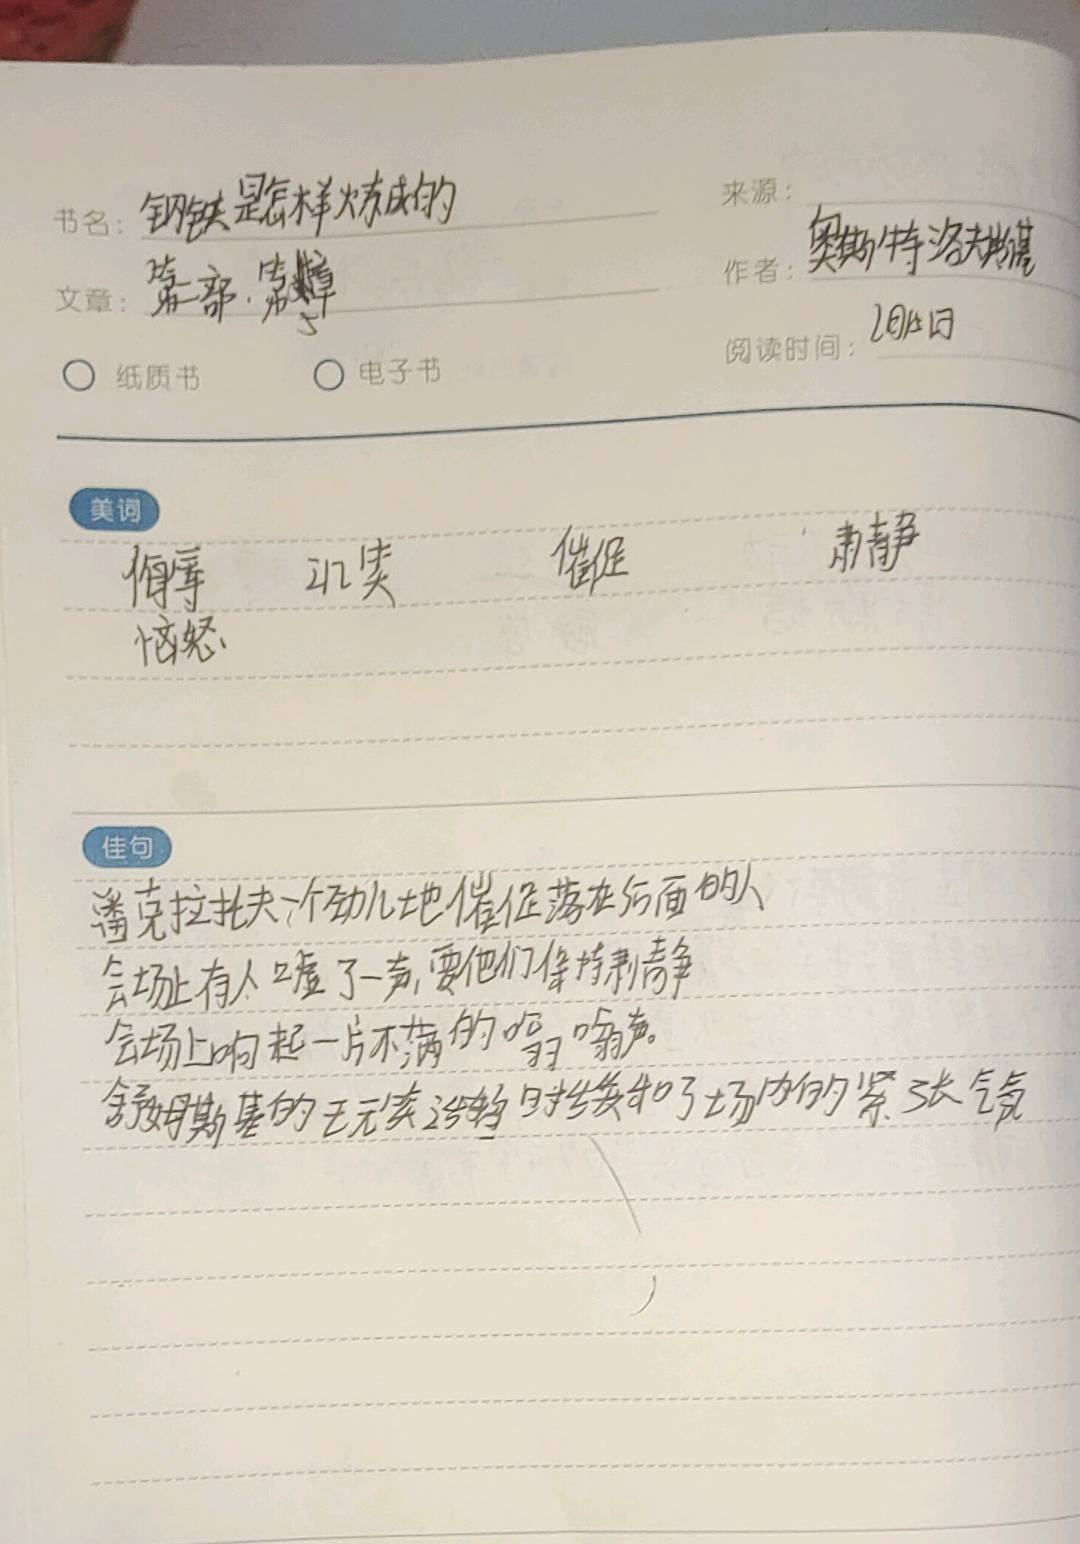 书名：钢铁是怎样炼成的
来源：
文章：第二部·第 章
作者：奥斯特洛夫斯基
纸质书
电子书
阅读时间：2月15日
美词
侮辱 讥笑 催促 肃静
恼怒
佳句
潘克拉托夫一个劲儿地催促落在后面的人
会场上有人嘘了一声,要他们保持肃静
会场上响起一片不满的嗡嗡声。
舒姆斯基的 了场内的紧张气氛